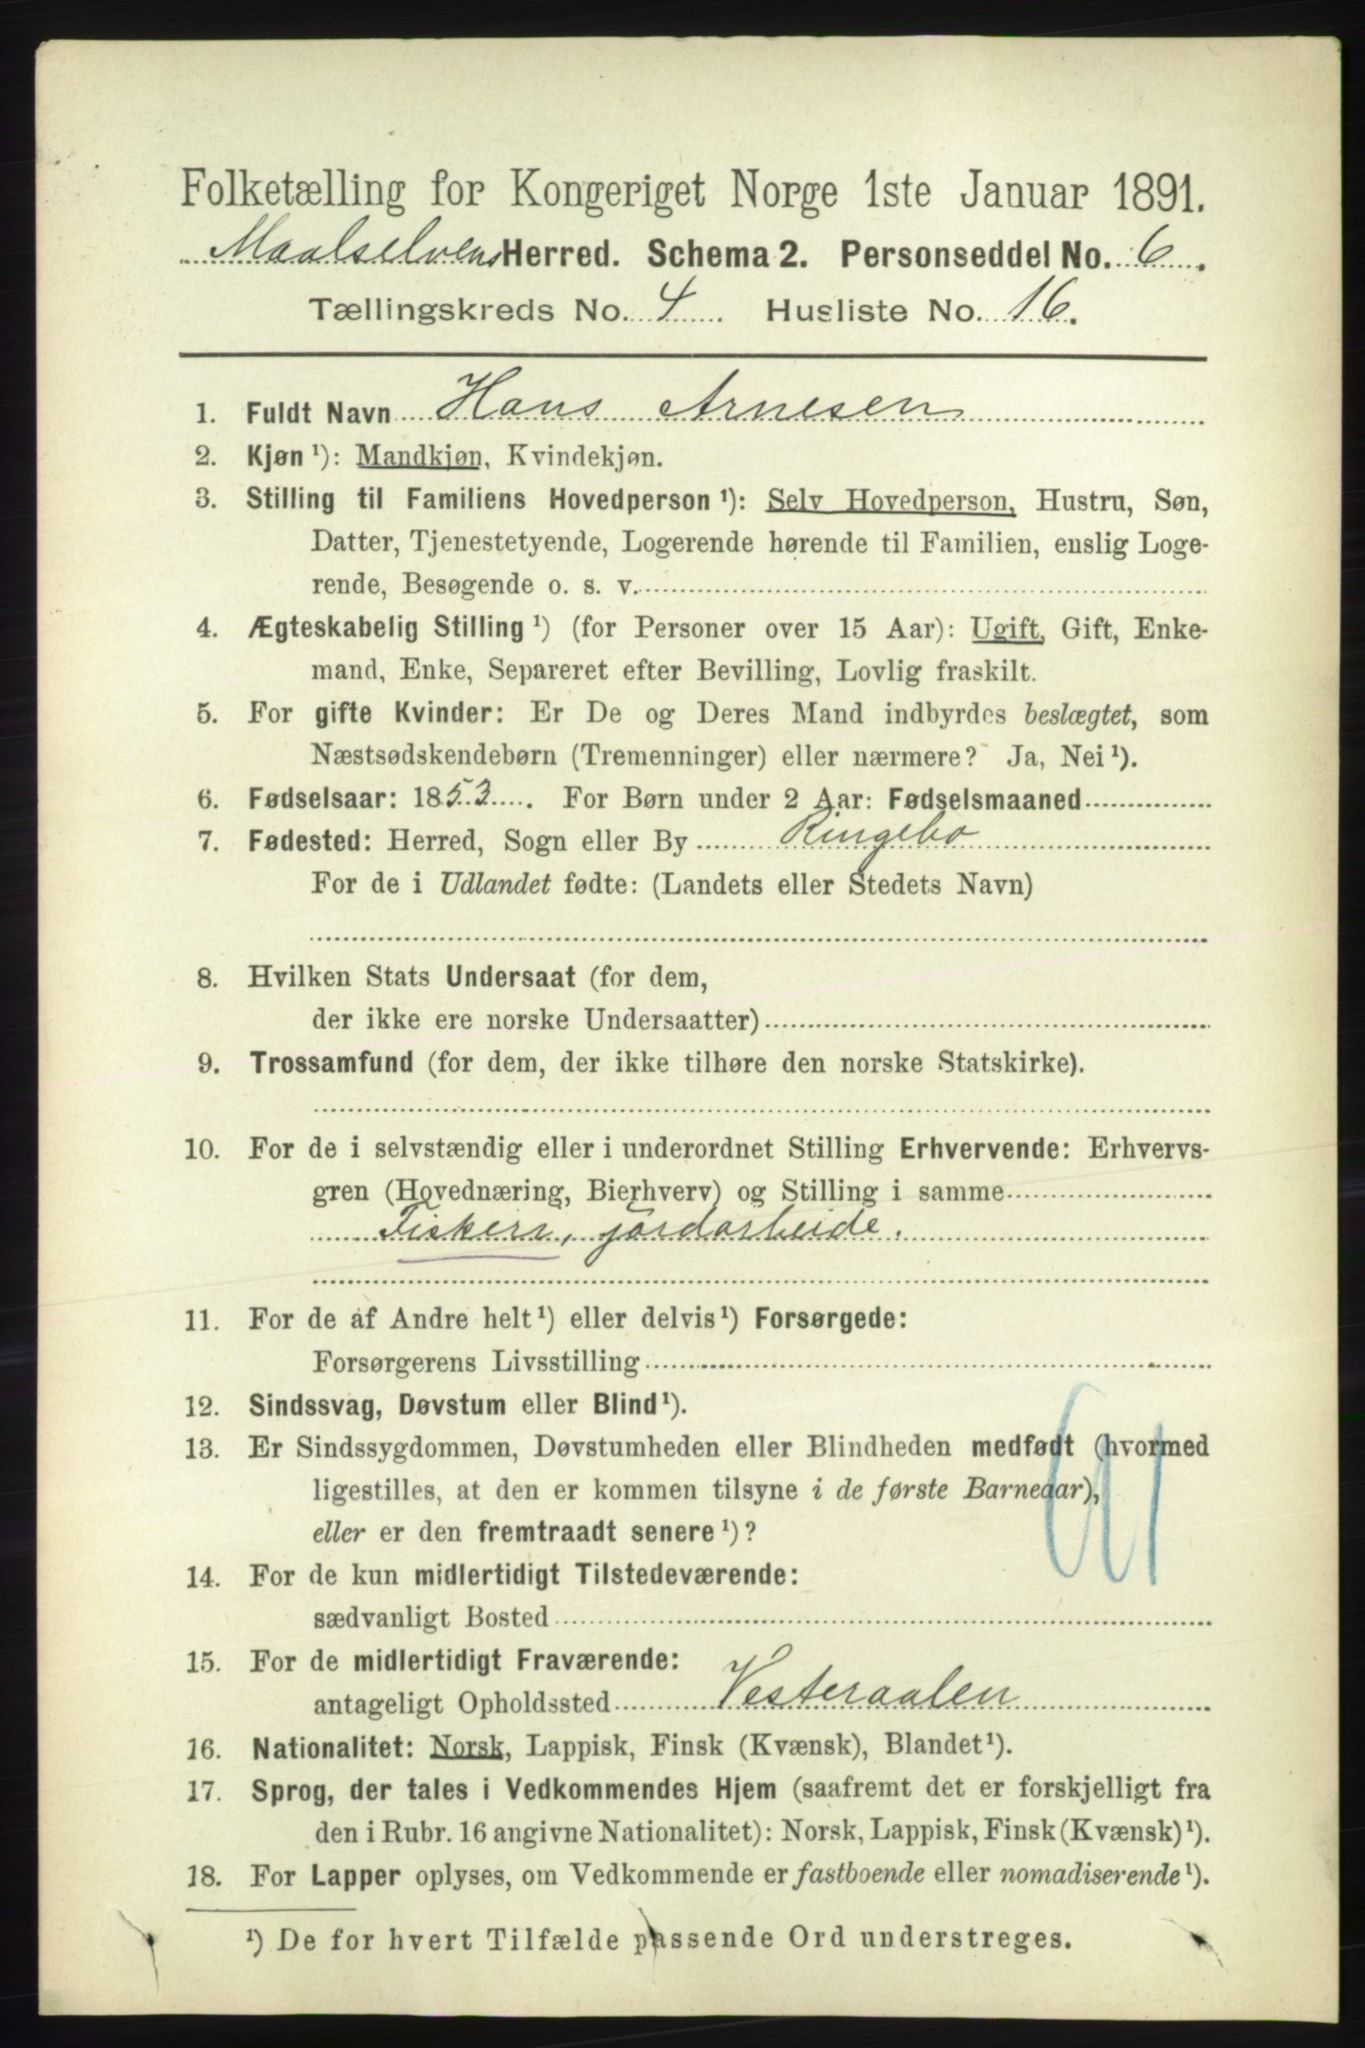 Folketælling for Kongeriget Norge 1ste Januar 1891.
Maalselvens Herred. Schema 2. Personseddel No. 6.
Tællingskreds No. 4 Husliste No. 16.
1. Fuldt Navn Hans Arnesen
2. Kjøn¹): Mandkjøn, Kvindekjøn.
3. Stilling til Familiens Hovedperson¹): Selv Hovedperson, Hustru, Søn,
Datter, Tjenestetyende, Logerende hørende til Familien, enslig Loge-
rende, Besøgende o. s. v.
4. Ægteskabelig Stilling¹) (for Personer over 15 Aar): Ugift, Gift, Enke-
mand, Enke, Separeret efter Bevilling, Lovlig fraskilt.
5. For gifte Kvinder: Er De og Deres Mand indbyrdes beslægtet, som
Næstsødskendebørn (Tremenninger) eller nærmere? Ja, Nei¹).
6. Fødselsaar: 1853. For Børn under 2 Aar: Fødselsmaaned
7. Fødested: Herred, Sogn eller By Ringebo
For de i Udlandet fødte: (Landets eller Stedets Navn)
8. Hvilken Stats Undersaat (for dem,
der ikke ere norske Undersaatter)
9. Trossamfund (for dem, der ikke tilhøre den norske Statskirke).
10. For de i selvstændig eller i underordnet Stilling Erhvervende: Erhvervs-
gren (Hovednæring, Bierhverv) og Stilling i samme
Fiskeri, jordarbeide.
11. For de af Andre helt¹) eller delvis¹) Forsørgede:
Forsørgerens Livsstilling
12. Sindssvag, Døvstum eller Blind¹).
13. Er Sindssygdommen, Døvstumheden eller Blindheden medfødt (hvormed
ligestilles, at den er kommen tilsyne i de første Barneaar),
eller er den fremtraadt senere¹)?
14. For de kun midlertidigt Tilstedeværende:
sædvanligt Bosted
15. For de midlertidigt Fraværende:
antageligt Opholdssted Vesteraalen
16. Nationalitet: Norsk, Lappisk, Finsk (Kvænsk), Blandet¹).
17. Sprog, der tales i Vedkommendes Hjem (saafremt det er forskjelligt fra
den i Rubr. 16 angivne Nationalitet): Norsk, Lappisk, Finsk (Kvænsk)¹).
18. For Lapper oplyses, om Vedkommende er fastboende eller nomadiserende¹).
¹) De for hvert Tilfælde passende Ord understreges.